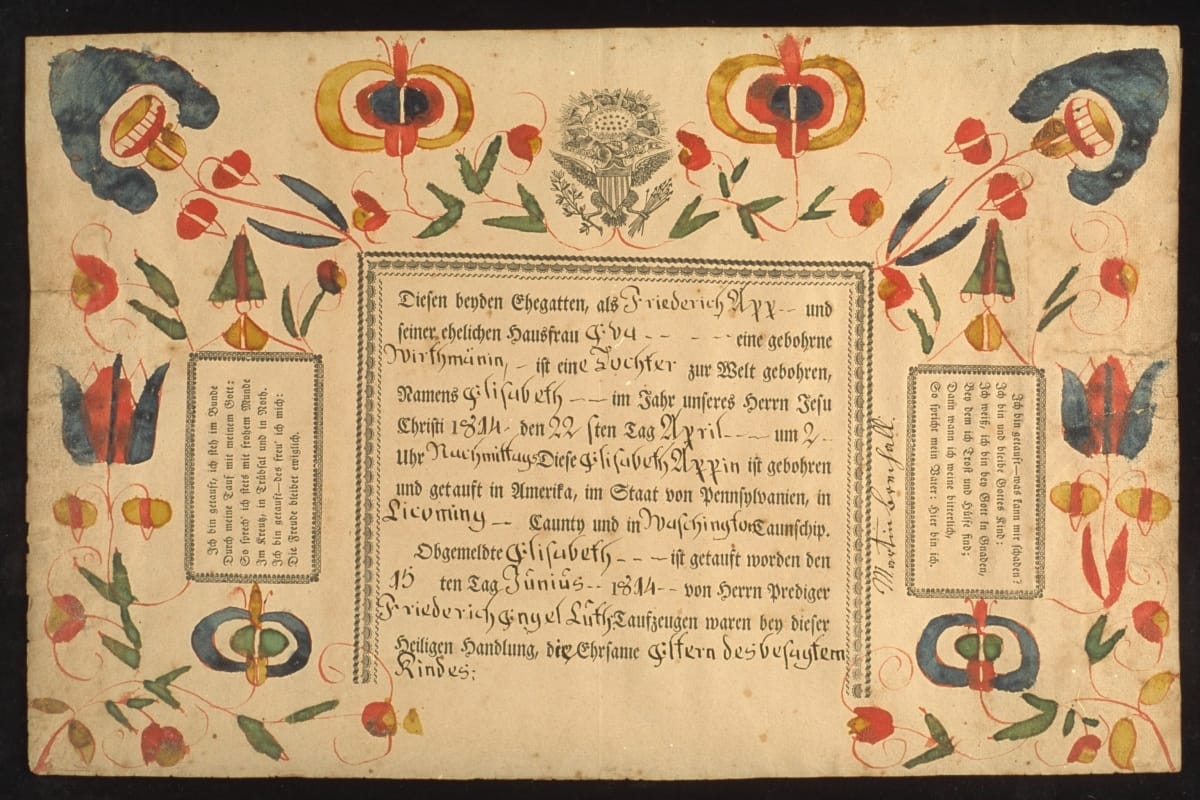 Diesen beyden Ehegatten, als Friederich App -- und
seiner ehelichen Hausfrau Eva - - - - - eine gebohrne
Wirthmänin, - ist eine Tochter zur Welt gebohren,
Namens Elisabeth - - im Jahr unseres Herrn Jesu
Christi 1814 - den 22 sten Tag April - - - um 2 -
Uhr Nachmittags Diese Elisabeth Appin ist gebohren
und getauft in Amerika, im Staat von Pennsylvanien, in
Licoming -- Caunty und in Waschington Taunschip.
Obgemeldte Elisabeth - - - ist getauft worden den
15 ten Tag Junius - - 1814 - - von Herrn Prediger
Friederich Engel Luth Taufzeugen waren bey dieser
Heiligen Handlung, die Ehrsame Eltern des besagtem
Kindes:
Ich bin getauft, ich steh im Bunde
Durch meine Tauf mit meinem Gott:
So sprech' ich stets mit frohem Munde
Im Kreutz, in Trübsal und in Noth.
Ich bin getauft—des freu' ich mich:
Die Freude bleibet ewiglich.
Ich bin getauft—was kann mir schaden?
Ich bin und bleibe Gottes Kind:
Ich weiß, ich bin bey Gott in Gnaden,
Bey dem ich Trost und Hülfe find;
Dann wann ich weine bitterlich,
So spricht mein Vater: Hier bin ich.
Martin